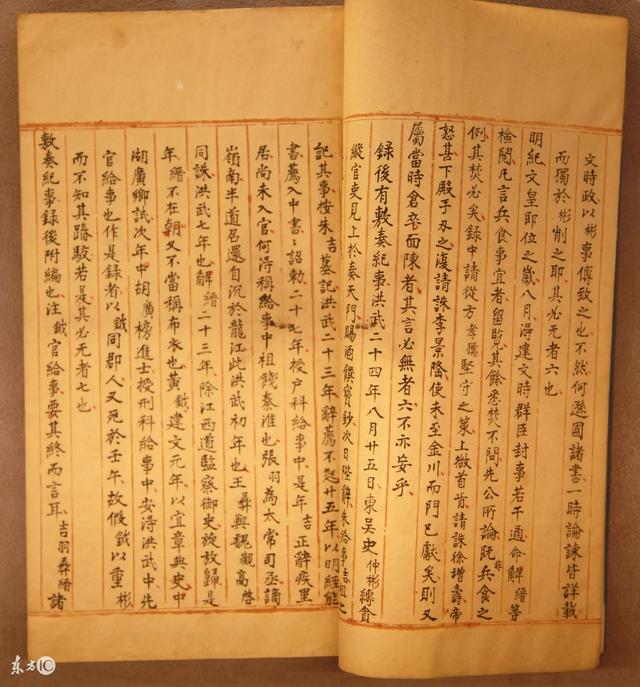 文時政以彬事傳致之也不然何遜國諸書一時論諫皆詳載
而獨於彬削之耶其必无者六也
明紀文皇即位之歲八月淂建文時群臣封事若干通命解縉等
檢閱凡言兵食事宜者留覧其餘悉焚不問先公所論旣非兵食之
例其焚必矣録中請從方孝孺堅守之策上微首肯請誅徐增壽帝
怒甚下殿手刃之復請誅李景隆使未至金川而門已獻矣則又
屬當時倉卒面陳者其言必無者六不亦妄乎
録後有敷奏紀事洪武二十四年八月廿五日東吳史仲彬縛貪
縱官吏見上於奏天門賜酒饌寳鈔次日陛辭朱給事吉祖之
記其事桉朱吉墓記洪武二十三年辭薦不起廿五年以明經能
書薦入中書〻詔勅二十七年授戶科給事中是年吉正辭疾里
居尚未入官何淂稱給事中祖餞秦淮也張羽為太常司丞謫
嶺南半道召還自沉於龍江此洪武初年也王彞與魏觀高啓
同誅洪武七年也解縉二十三年除江西道監察御史旋放歸是
年縉不在朝又不當稱布衣也黃鉞建文元年以宜章典史中
湖廣鄉試次年中胡廣榜進士授刑科給事中安淂洪武中先
官給事也作是録者以鉞同郡人又死於壬午故假鉞以重彬
而不知其踳駁若是其必无者七也
敷奏紀事録後附編也注鉞官給事要其終而言耳吉羽彞縉諸
东方IC